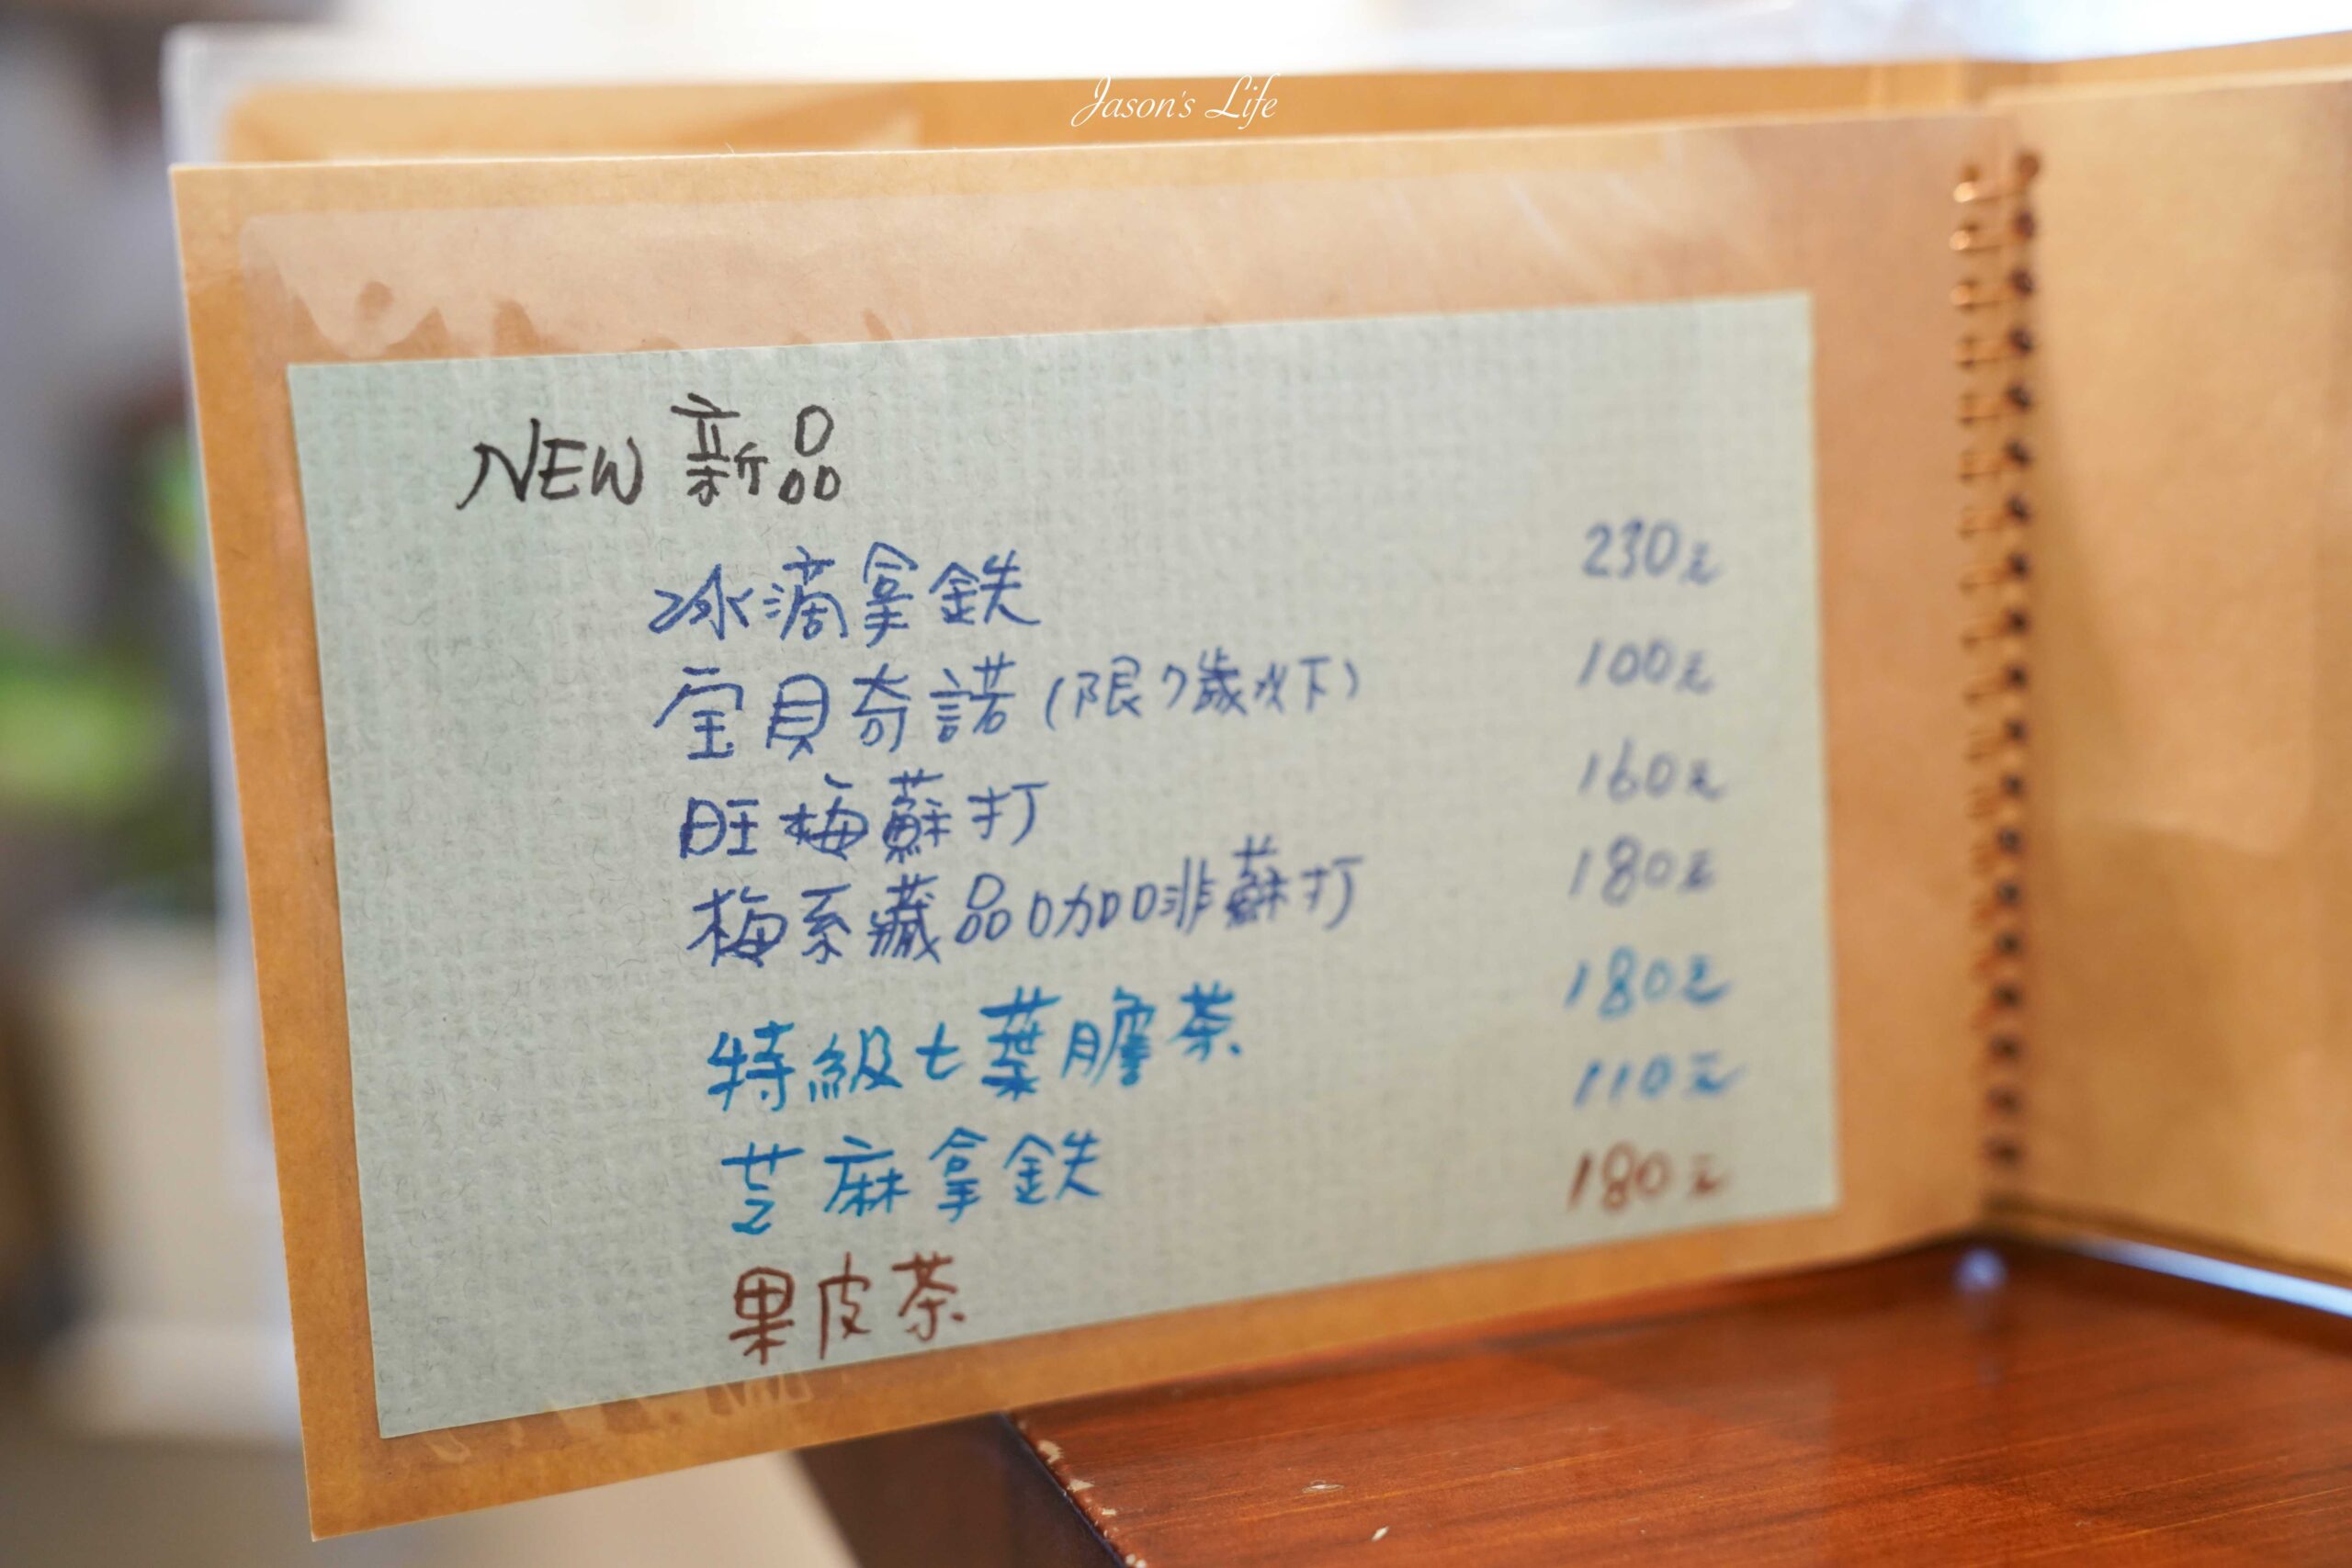 Jason's Life
NEW 新品
冰滴拿鉄 230元
宝貝奇諾(限7歲以下) 100元
旺梅蘇打 160元
梅系藏品咖啡蘇打 180元
特級七葉膽茶 180元
芝麻拿鉄 110元
果皮茶 180元